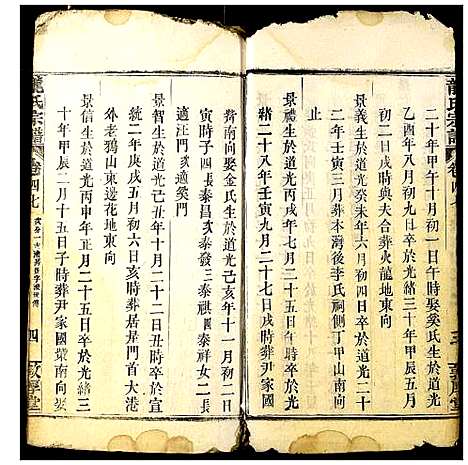 龍氏宗譜
卷四七
三
敦厚堂
二十年甲午十月初一日午時娶奚氏生於道光
乙酉年八月初二日戌時卒於光緒三十年甲辰五月
初二日戌時葬火龍地東向
景義生於道光癸未年六月初四日卒於道光二十
二年壬寅三月葬本灣後李氏祠側丁甲山南向
止
景禮生於道光丙戌年七月二十二日戌時卒於光
緒二十八年壬寅二月二十七日戌時葬尹家國
灣南向娶金氏生於道光己亥年十一月初二日
寅時子四長泰昌次泰發三泰祺四泰祥女二長
適汪門次適奚門
景智生於道光己丑年十月二十二日丑時卒於宣
統二年庚戌五月初六日亥時葬居是門首大港
外老鴉山東邊花地東向
景信生於道光丙申年正月二十五日卒於光緒三
十年甲辰二月十五日子時葬尹家國瓌南向娶
龍氏宗譜
卷四七
四
敦厚堂